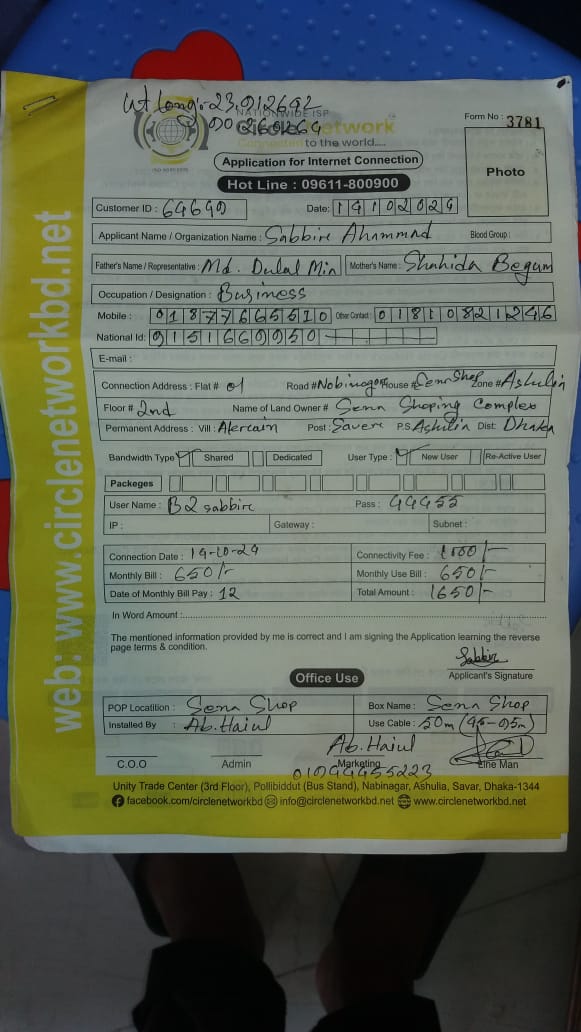 NATIONWIDE ISP
Connected to the world.....
Form No : 3781
ISO 9001:2015
Application for Internet Connection
Hot Line : 09611-800900
Photo
Customer ID :
Date: 14102024
Applicant Name / Organization Name : Sabbire Ahammad Blood Group :
Father's Name / Representative : Md. Dulal Mia Mother's Name : Shahida Begum
Occupation / Designation : Business
Mobile : 01877665510 Other Contact : 01810821246
National Id:
E-mail :
Connection Address : Flat # 01 Road # Nobinagor House # Sena Shop Zone # Ashulia
Floor # 2nd Name of Land Owner # Sena Shoping Complex
Permanent Address : Vill : Post : Savere P.S Ashulia Dist: Dhaka
Bandwidth Type Shared Dedicated User Type : New User Re-Active User
Packeges
User Name : B2 sabbire Pass : 44455
IP : Gateway : Subnet :
Connection Date : 14-10-24 Connectivity Fee : 1000/-
Monthly Bill : 650/- Monthly Use Bill : 650/-
Date of Monthly Bill Pay : 12 Total Amount : 1650/-
In Word Amount :
The mentioned information provided by me is correct and I am signing the Application learning the reverse
page terms & condition.
Sabbire
Applicant's Signature
Office Use
POP Locatition : Sena Shop Box Name : Sena Shop
Installed By : Ab. Haiul Use Cable : 50m
Ab. Haiul
C.O.O Admin Marketing Line Man
Unity Trade Center (3rd Floor), Pollibiddut (Bus Stand), Nabinagar, Ashulia, Savar, Dhaka-1344
facebook.com/circlenetworkbd info@circlenetworkbd.net www.circlenetworkbd.net
web: www.circlenetworkbd.net